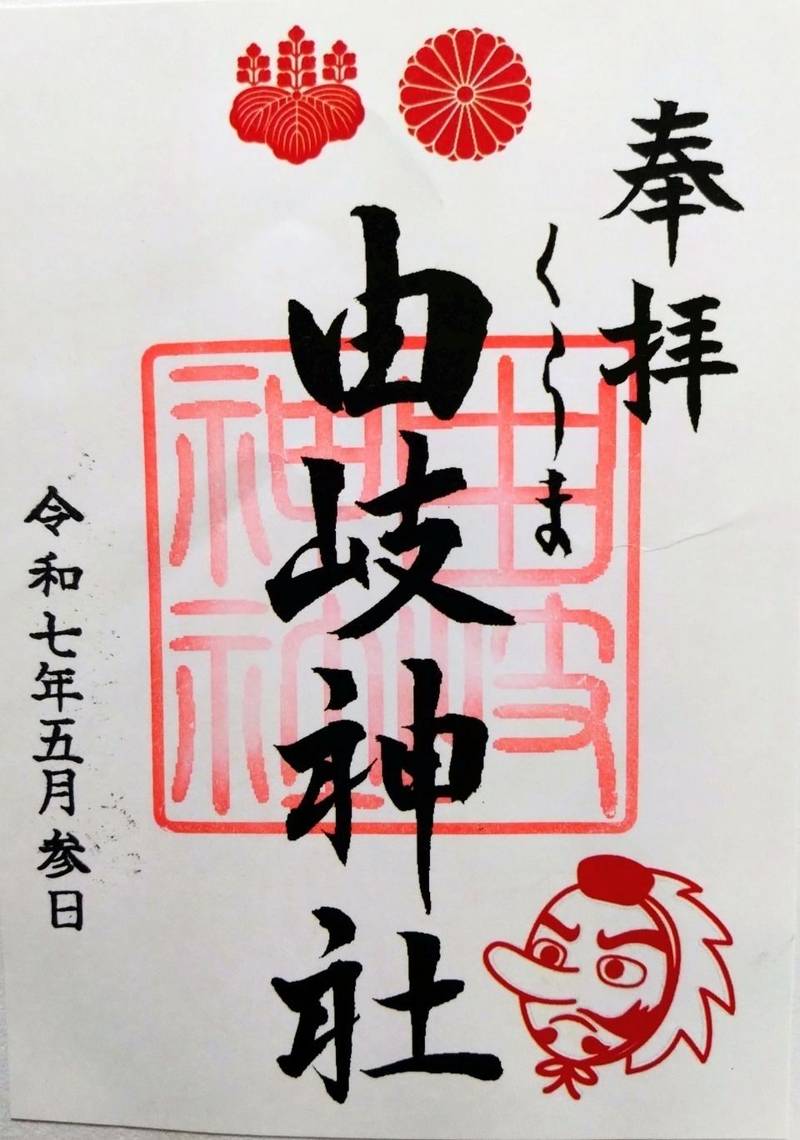 奉拝
くらま
由岐神社
由岐神社
令和七年五月参日